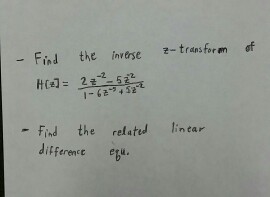 - Find the inverse z-transform of
H[z] = (2z^-2 - 5z^2) / (1 - 6z^-5 + 5z^-2)
- Find the related linear
difference equ.